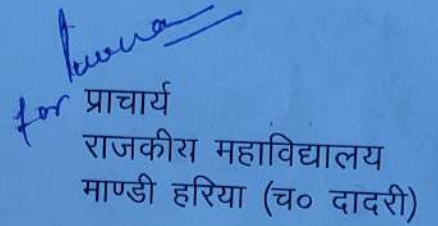 for प्राचार्य
राजकीय महाविद्यालय
माण्डी हरिया (च० दादरी)